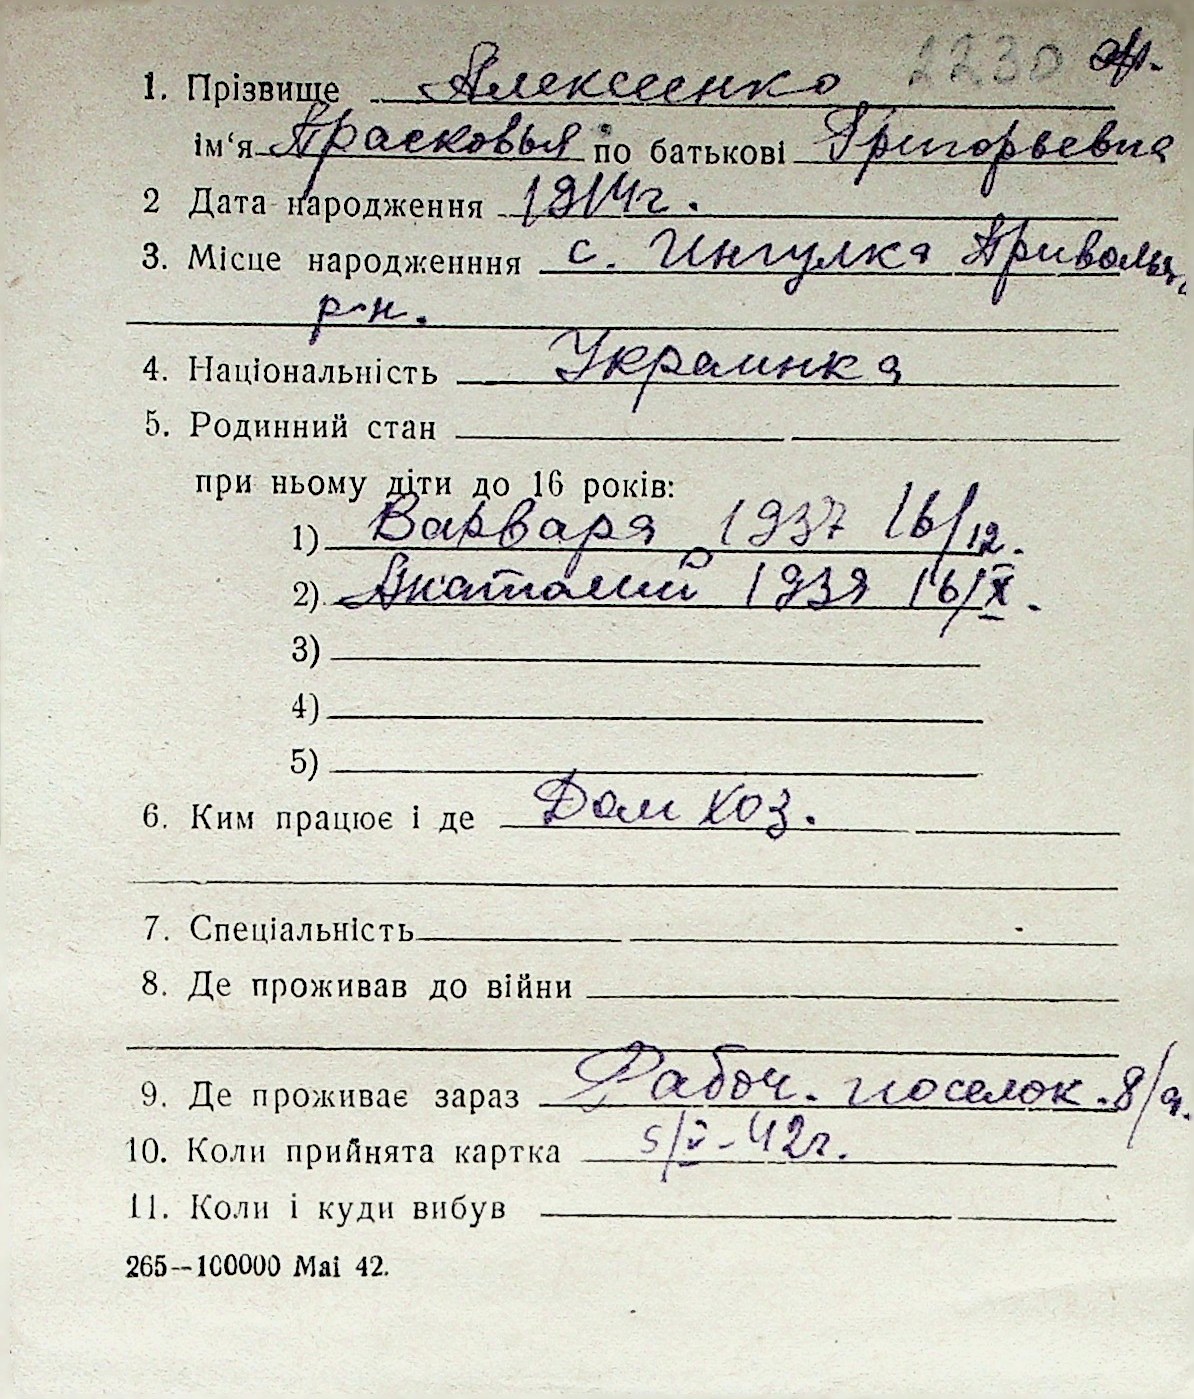 2230
1. Прізвище Алексеенко
ім‘я Прасковья по батькові Григорьевна
2 Дата народження 1914г.
3. Місце народженння с. Ингулка Привольн.
р-н.
4. Національність Украинка
5. Родинний стан
при ньому діти до 16 років:
1) Варваря 1937 16/12.
2) Анатолий 1939 16/X.
3)
4)
5)
6. Ким працює і де Дом хоз.
7. Спеціальність
8. Де проживав до війни
9. Де проживає зараз Рабоч. поселок. 8/я.
10. Коли прийнята картка 5/V-42г.
11. Коли і куди вибув
265—100000 Mai 42.